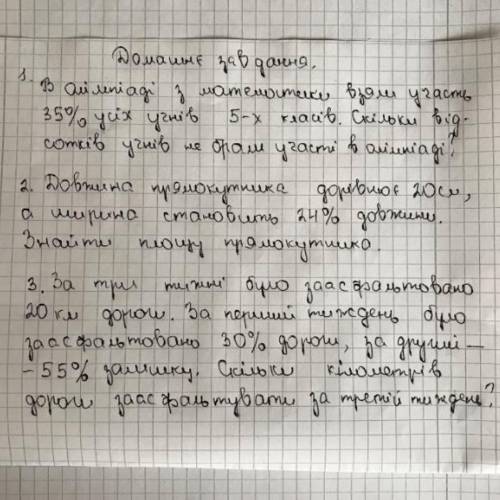 Домашнє завдання.
1. В олімпіаді з математики взяли участь
35% усіх учнів 5-х класів. Скільки від-
сотків учнів не брали участі в олімпіаді?
2. Довжина прямокутника дорівнює 20см,
а ширина становить 24% довжини.
Знайти площу прямокутника.
3. За три тижні було заасфальтовано
20 км дороги. За перший тиждень було
заасфальтовано 30% дороги, за другий -
- 55% залишку. Скільки кілометрів
дороги заасфальтували за третій тиждень?